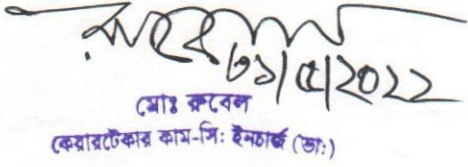 রুবেল
৩১/৫/২০২২
মোঃ রুবেল
কেয়ারটেকার কাম-সি: ইনচার্জ (ভা:)